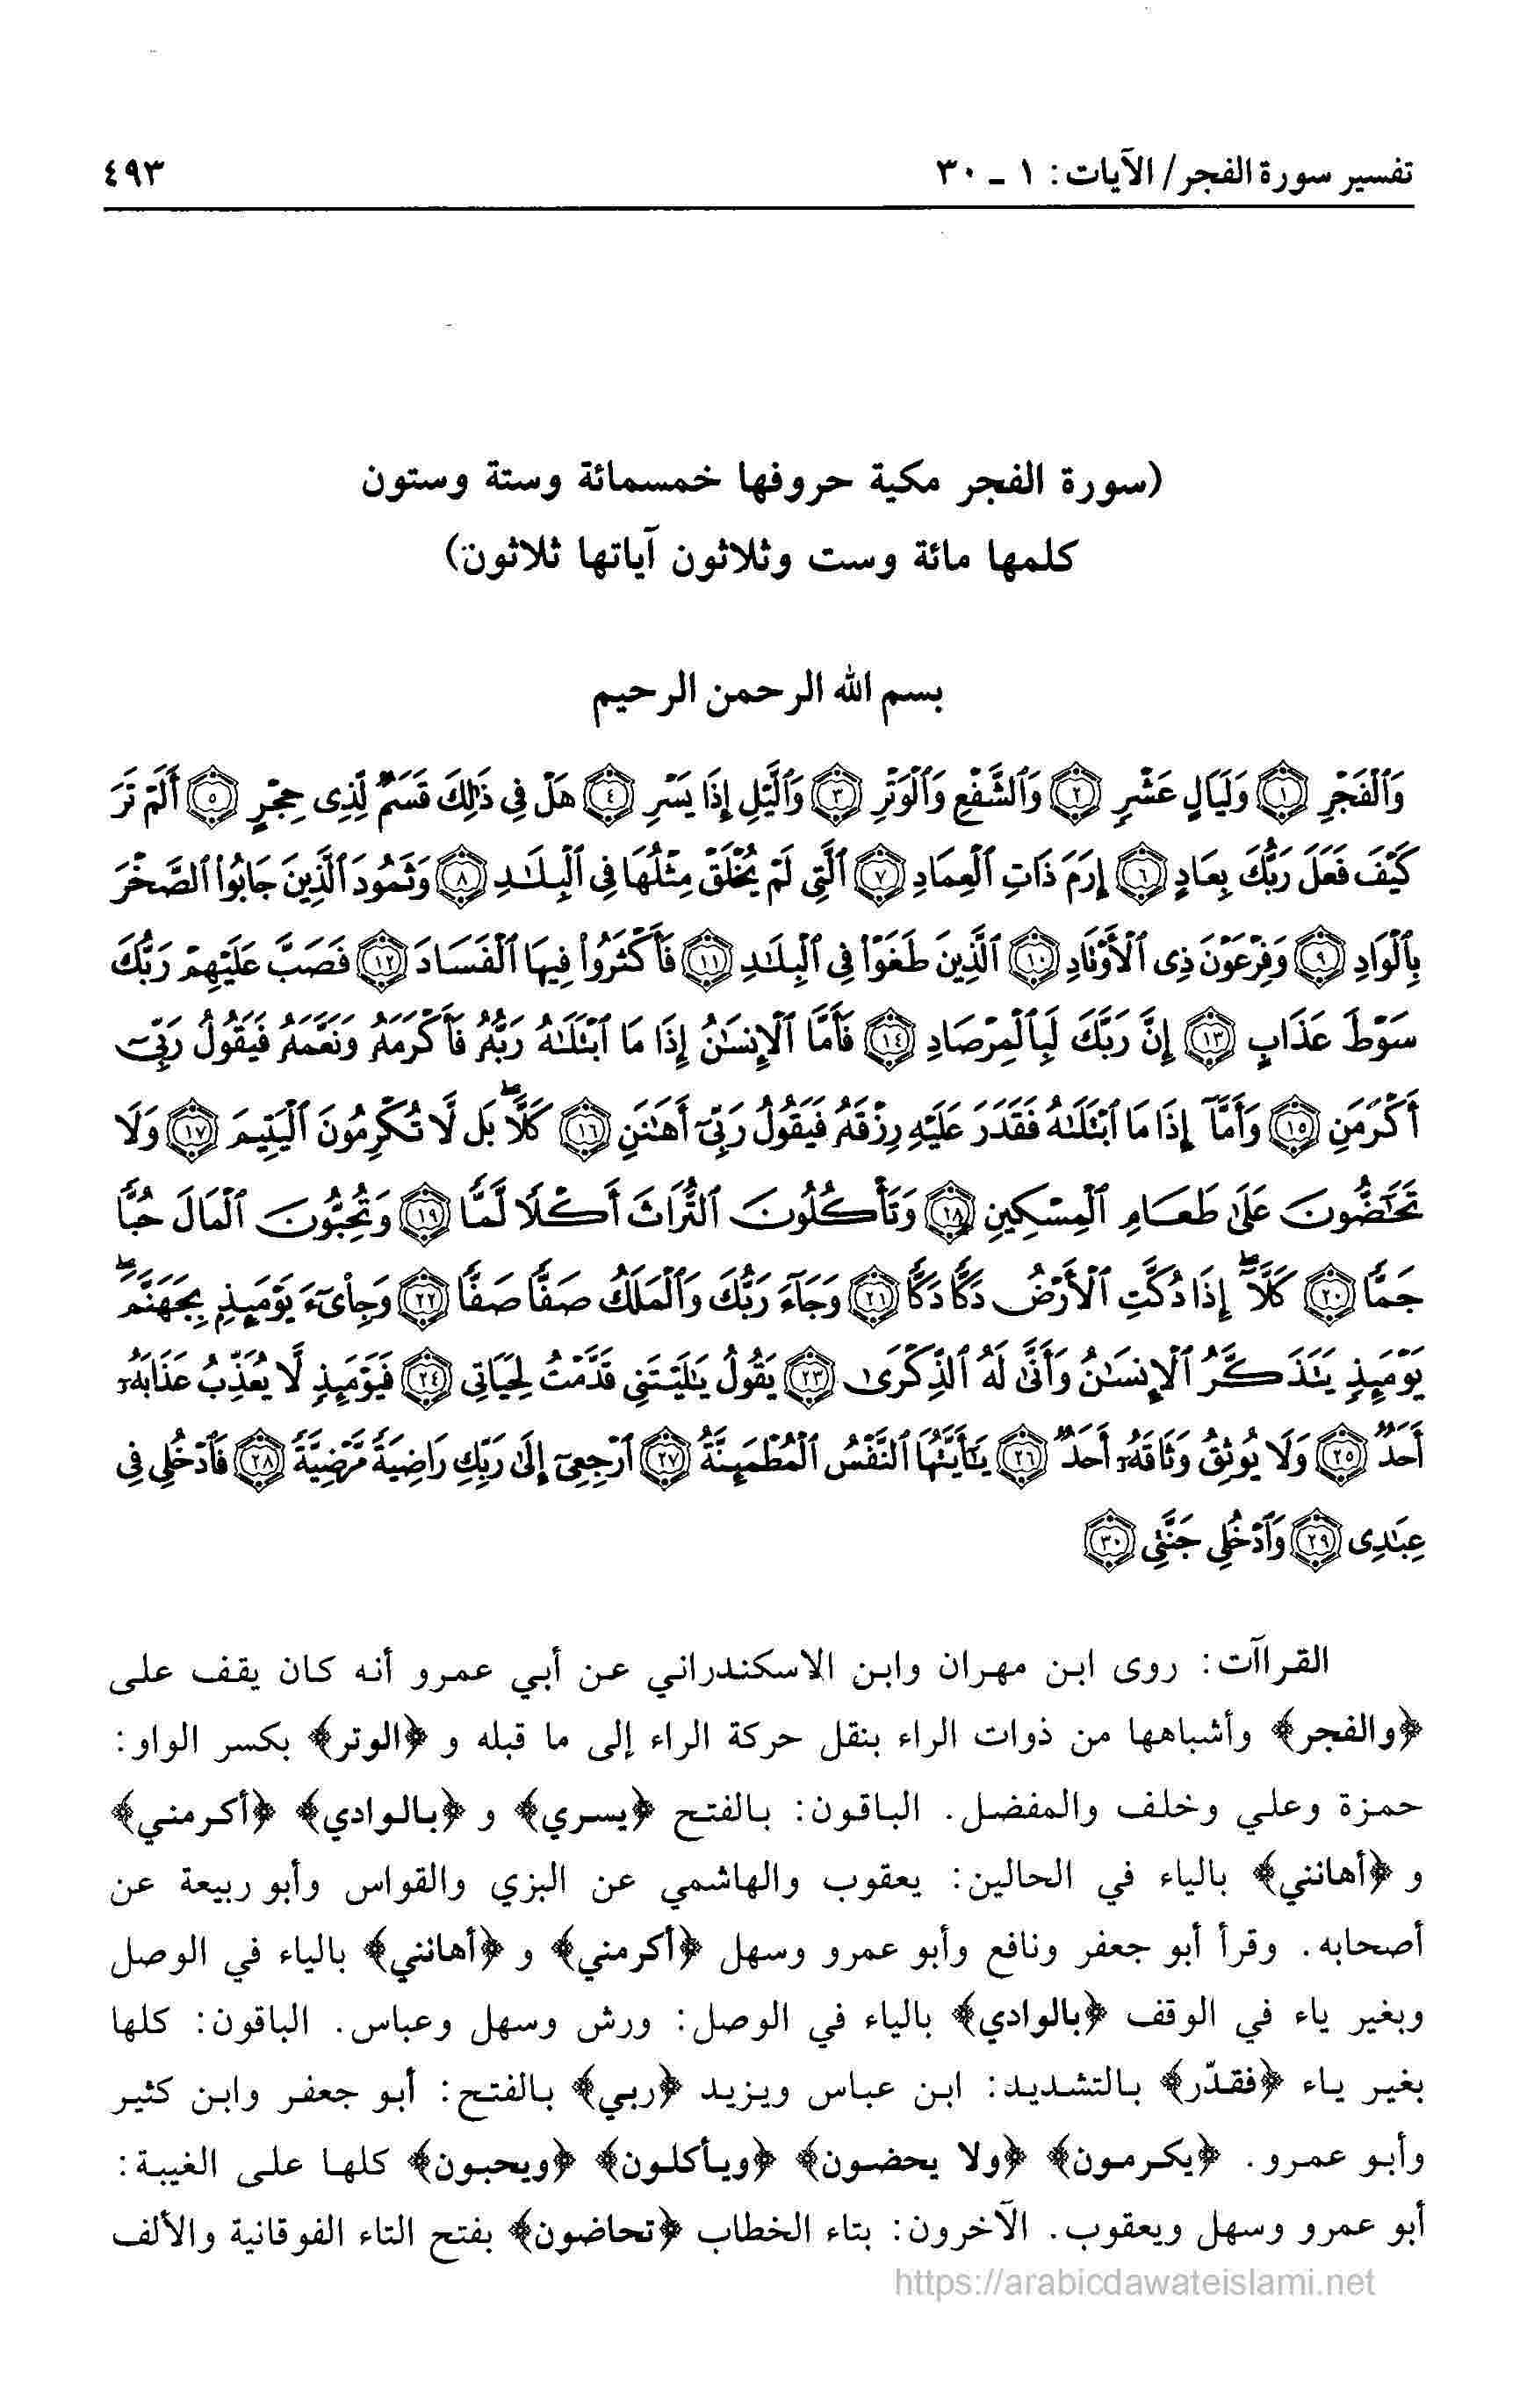 تفسير سورة الفجر/ الآيات: ١ ـ ٣٠
٤٩٣
(سورة الفجر مكية حروفها خمسمائة وستة وستون
كلمها مائة وست وثلاثون آياتها ثلاثون)
بسم الله الرحمن الرحيم
وَٱلْفَجْرِ ١ وَلَيَالٍ عَشْرٍ ٢ وَٱلشَّفْعِ وَٱلْوَتْرِ ٣ وَٱلَّيْلِ إِذَا يَسْرِ ٤ هَلْ فِى ذَٰلِكَ قَسَمٌ لِّذِى حِجْرٍ ٥ أَلَمْ تَرَ
كَيْفَ فَعَلَ رَبُّكَ بِعَادٍ ٦ إِرَمَ ذَاتِ ٱلْعِمَادِ ٧ ٱلَّتِى لَمْ يُخْلَقْ مِثْلُهَا فِى ٱلْبِلَـٰدِ ٨ وَثَمُودَ ٱلَّذِينَ جَابُوا۟ ٱلصَّخْرَ
بِٱلْوَادِ ٩ وَفِرْعَوْنَ ذِى ٱلْأَوْنَادِ ١٠ ٱلَّذِينَ طَغَوْا۟ فِى ٱلْبِلَـٰدِ ١١ فَأَكْثَرُوا۟ فِيهَا ٱلْفَسَادَ ١٢ فَصَبَّ عَلَيْهِمْ رَبُّكَ
سَوْطَ عَذَابٍ ١٣ إِنَّ رَبَّكَ لَبِٱلْمِرْصَادِ ١٤ فَأَمَّا ٱلْإِنسَـٰنُ إِذَا مَا ٱبْتَلَىٰهُ رَبُّهُۥ فَأَكْرَمَهُۥ وَنَعَّمَهُۥ فَيَقُولُ رَبِّىٓ
أَكْرَمَنِ ١٥ وَأَمَّآ إِذَا مَا ٱبْتَلَىٰهُ فَقَدَرَ عَلَيْهِ رِزْقَهُۥ فَيَقُولُ رَبِّىٓ أَهَـٰنَنِ ١٦ كَلَّا ۖ بَل لَّا تُكْرِمُونَ ٱلْيَتِيمَ ١٧ وَلَا
تَحَـٰٓضُّونَ عَلَىٰ طَعَامِ ٱلْمِسْكِينِ ١٨ وَتَأْكُلُونَ ٱلتُّرَاثَ أَكْلًا لَّمًّا ١٩ وَتُحِبُّونَ ٱلْمَالَ حُبًّا
جَمًّا ٢٠ كَلَّآ ۖ إِذَا دُكَّتِ ٱلْأَرْضُ دَكًّا دَكًّا ٢١ وَجَآءَ رَبُّكَ وَٱلْمَلَكُ صَفًّا صَفًّا ٢٢ وَجِا۟ىٓءَ يَوْمَئِذٍۭ بِجَهَنَّمَ ۚ
يَوْمَئِذٍ يَتَذَكَّرُ ٱلْإِنسَـٰنُ وَأَنَّىٰ لَهُ ٱلذِّكْرَىٰ ٢٣ يَقُولُ يَـٰلَيْتَنِى قَدَّمْتُ لِحَيَاتِى ٢٤ فَيَوْمَئِذٍ لَّا يُعَذِّبُ عَذَابَهُۥٓ
أَحَدٌ ٢٥ وَلَا يُوثِقُ وَثَاقَهُۥٓ أَحَدٌ ٢٦ يَـٰٓأَيَّتُهَا ٱلنَّفْسُ ٱلْمُطْمَئِنَّةُ ٢٧ ٱرْجِعِىٓ إِلَىٰ رَبِّكِ رَاضِيَةً مَّرْضِيَّةً ٢٨ فَٱدْخُلِى فِى
عِبَـٰدِى ٢٩ وَٱدْخُلِى جَنَّتِى ٣٠
القراآت: روى ابن مهران وابن الاسكندراني عن أبي عمرو أنه كان يقف على
﴿والفجر﴾ وأشباهها من ذوات الراء بنقل حركة الراء إلى ما قبله و ﴿الوتر﴾ بكسر الواو:
حمزة وعلي وخلف والمفضل. الباقون: بالفتح ﴿يسري﴾ و ﴿بالوادي﴾ ﴿أكرمني﴾
و ﴿أهانني﴾ بالياء في الحالين: يعقوب والهاشمي عن البزي والقواس وأبو ربيعة عن
أصحابه. وقرأ أبو جعفر ونافع وأبو عمرو وسهل ﴿أكرمني﴾ و ﴿أهانني﴾ بالياء في الوصل
وبغير ياء في الوقف ﴿بالوادي﴾ بالياء في الوصل: ورش وسهل وعباس. الباقون: كلها
بغير ياء ﴿فقدّر﴾ بالتشديد: ابن عباس ويزيد ﴿ربي﴾ بالفتح: أبو جعفر وابن كثير
وأبو عمرو. ﴿يكرمون﴾ ﴿ولا يحضون﴾ ﴿ويأكلون﴾ ﴿ويحبون﴾ كلها على الغيبة:
أبو عمرو وسهل ويعقوب. الآخرون: بتاء الخطاب ﴿تحاضون﴾ بفتح التاء الفوقانية والألف
https://arabicdawateislami.net